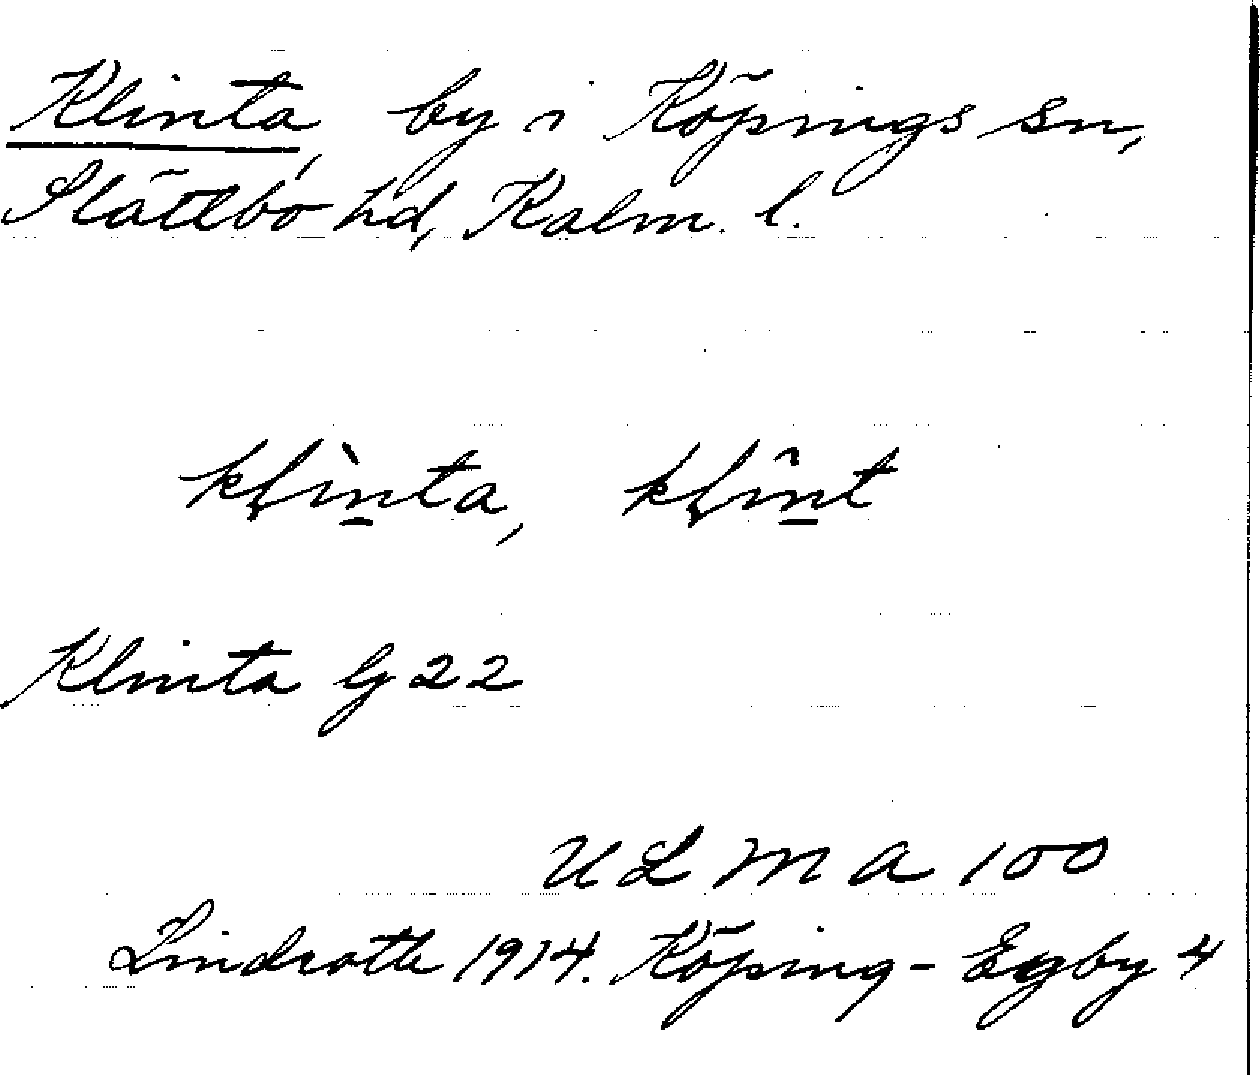 Klinta, by i Köpings sn,
Slättbo hd, Kalm. l.
kḷìn̲ta, kḷîn̲t
Klinta G 22
ULMA 100
Lindroth 1914. Köping - Egby 4